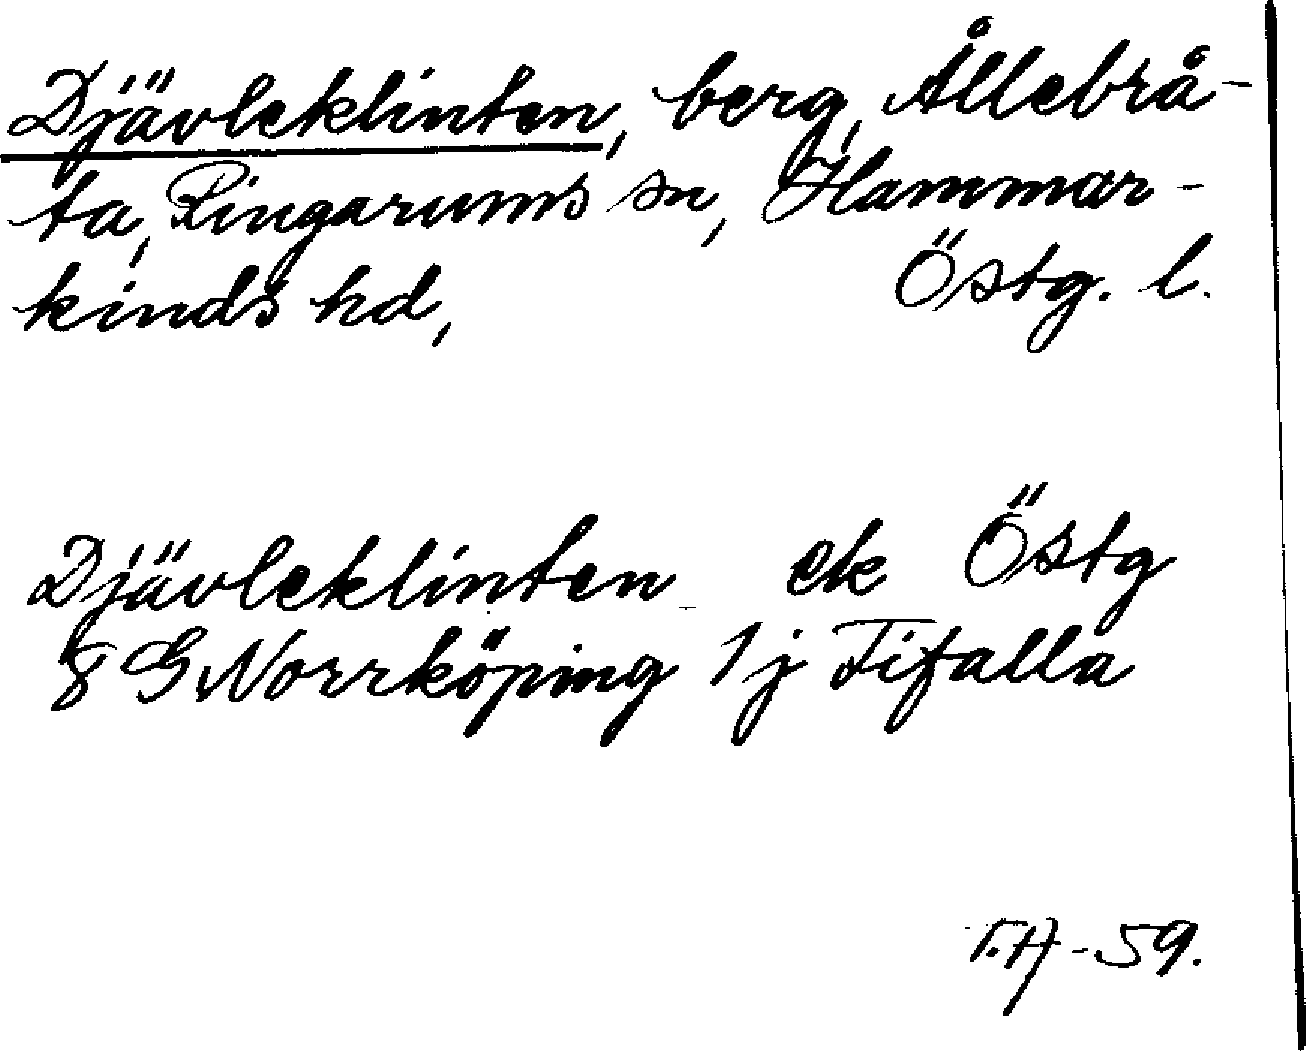 Djävleklinten, berg, Ållebrå-
ta, Ringarums sn, Hammar-
kinds hd, Östg. l.
Djävleklinten ek Östg
8 G Norrköping 1 j Fifalla
T.A -59.